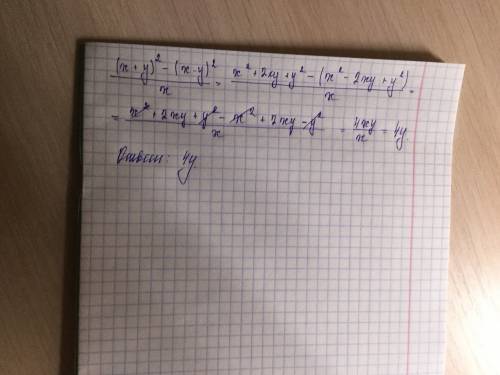 ((x + y)² − (x − y)²)/x = (x² + 2xy + y² − (x² − 2xy + y²))/x =
= (x² + 2xy + y² − x² + 2xy − y²)/x = 4xy/x = 4y.
Ответ: 4y